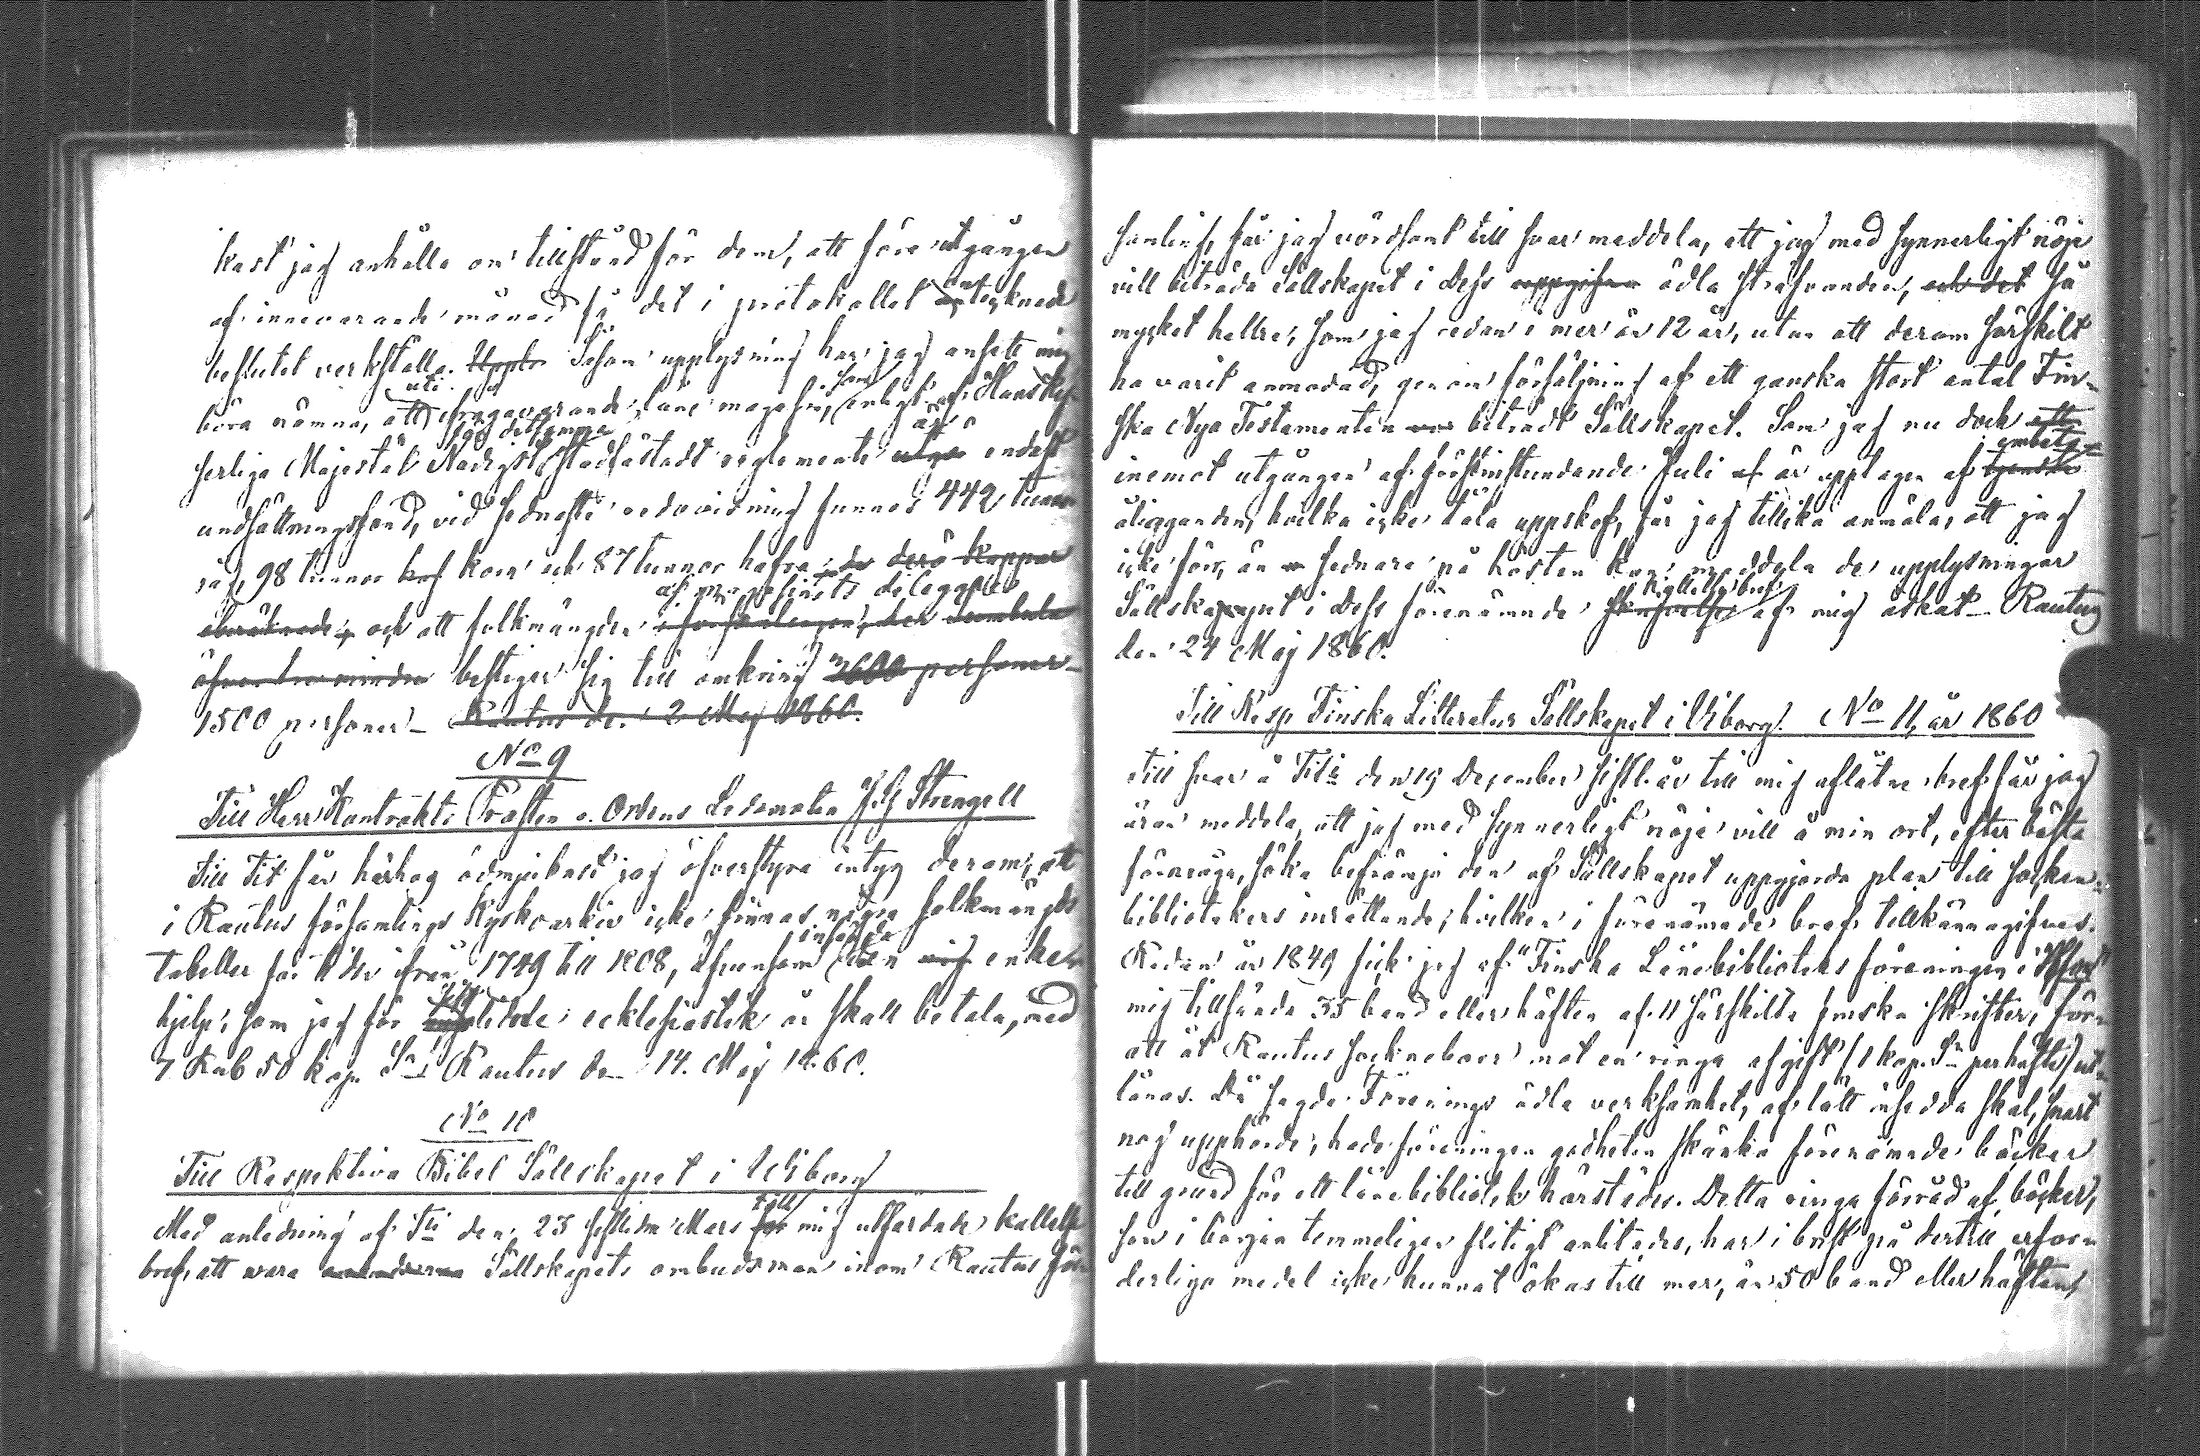 kast jag anhålla om tillstånd för dem, att före utgången
af innevarande månad få det i protokollet antecknade
beslutet verkställa. Såsom upplysning har jag ansett mig
böra nämna, att uti ifrågavarande låne magasin, som enligt af Hans Kej-
serliga Majestät Nådigst stadfästadt reglemente är endast
undsättningsfond, vid sednaste redovisning funnos 442 tunnor
råg, 98 tunnor korn och 87 tunnor hafra
och att folkmängden af magasinets delegare
bestiger sig till omkring
1500 personer – Rautus den 2 Maj 1860.
No 9
Till Herr Kontrakts Prosten o. Ordens Ledamoten Strengell
Till Tit får härhos ödmjukast jag öfverstyra intyg derom, att
i Rautus församlings Kyrkoarkiv icke finnas några folkmängds
tabeller för tiden ifrån 1749 till 1808, äfvensom insända den enke-
hjelp, som jag för ecklesiastik år skall betala, med
7 Rub 50 kop. Sr Rautus den 14. Maj 1860.
No 10
Till Respektiva Bibel Sällskapet i Wiborg
Med anledning af Tit den 23 sistlidne Mars till mig utfärdade kallelse
bref, att vara Sällskapets ombudsman inom Rautus för-
samling, får jag vördsamt till svar meddela, att jag med synnerligt nöje
vill biträda Sällskapet i Dess ädla sträfvanden, och det så
mycket hellre, som jag redan i mer än 12 år, utan att derom särskilt
ha varit anmodad, genom försäljning af ett ganska stort antal Fin-
ska Nya Testamenten biträdt Sällskapet. Som jag nu dock
inemot utgången af förstinstundande Juli är upptagen af embets
åligganden, hvilka icke tåla uppskof, får jag tillika anmäla, att jag
icke förr, än sednare på hösten kan meddela de upplysningar
Sällskapet i Dess förenämnde kallelsebref af mig äskat – Rautus
den 24 Maj 1860.
Till Resp Finska Litteratur Sällskapet i Viborg. No 11, år 1860
Till svar å Tits den 19 December sistl. år till mig aflåtne bref får jag
äran meddela, att jag med synnerligt nöje vill å min ort, efter bästa
förmåga, söka befrämja den af Sällskapet uppgjorda plan till socken-
bibliotekers inrättande, hvilken i förenämnde bref tillkännagifves.
Redan år 1849 fick jag af Finska Lånebiblioteks föreningen i Hfors
mig tillsända 35 band eller häften af 11 särskilda finska skrifter, för
att åt Rautus sockneboer mot en ringa afgift (1 kop. Sr per häfte) ut-
lånas. Då sagde Förenings ädla verksamhet, af lätt insedda skäl, snart
nog upphörde, hade föreningen godheten skänka förenämnde böcker
till grund för ett lånebibliotek härstädes. Detta ringa förråd af böcker,
som i början temmeligen flitigt anlitades, har i brist på dertill erfor-
derliga medel icke kunnat ökas till mer, än 50 band eller häften,